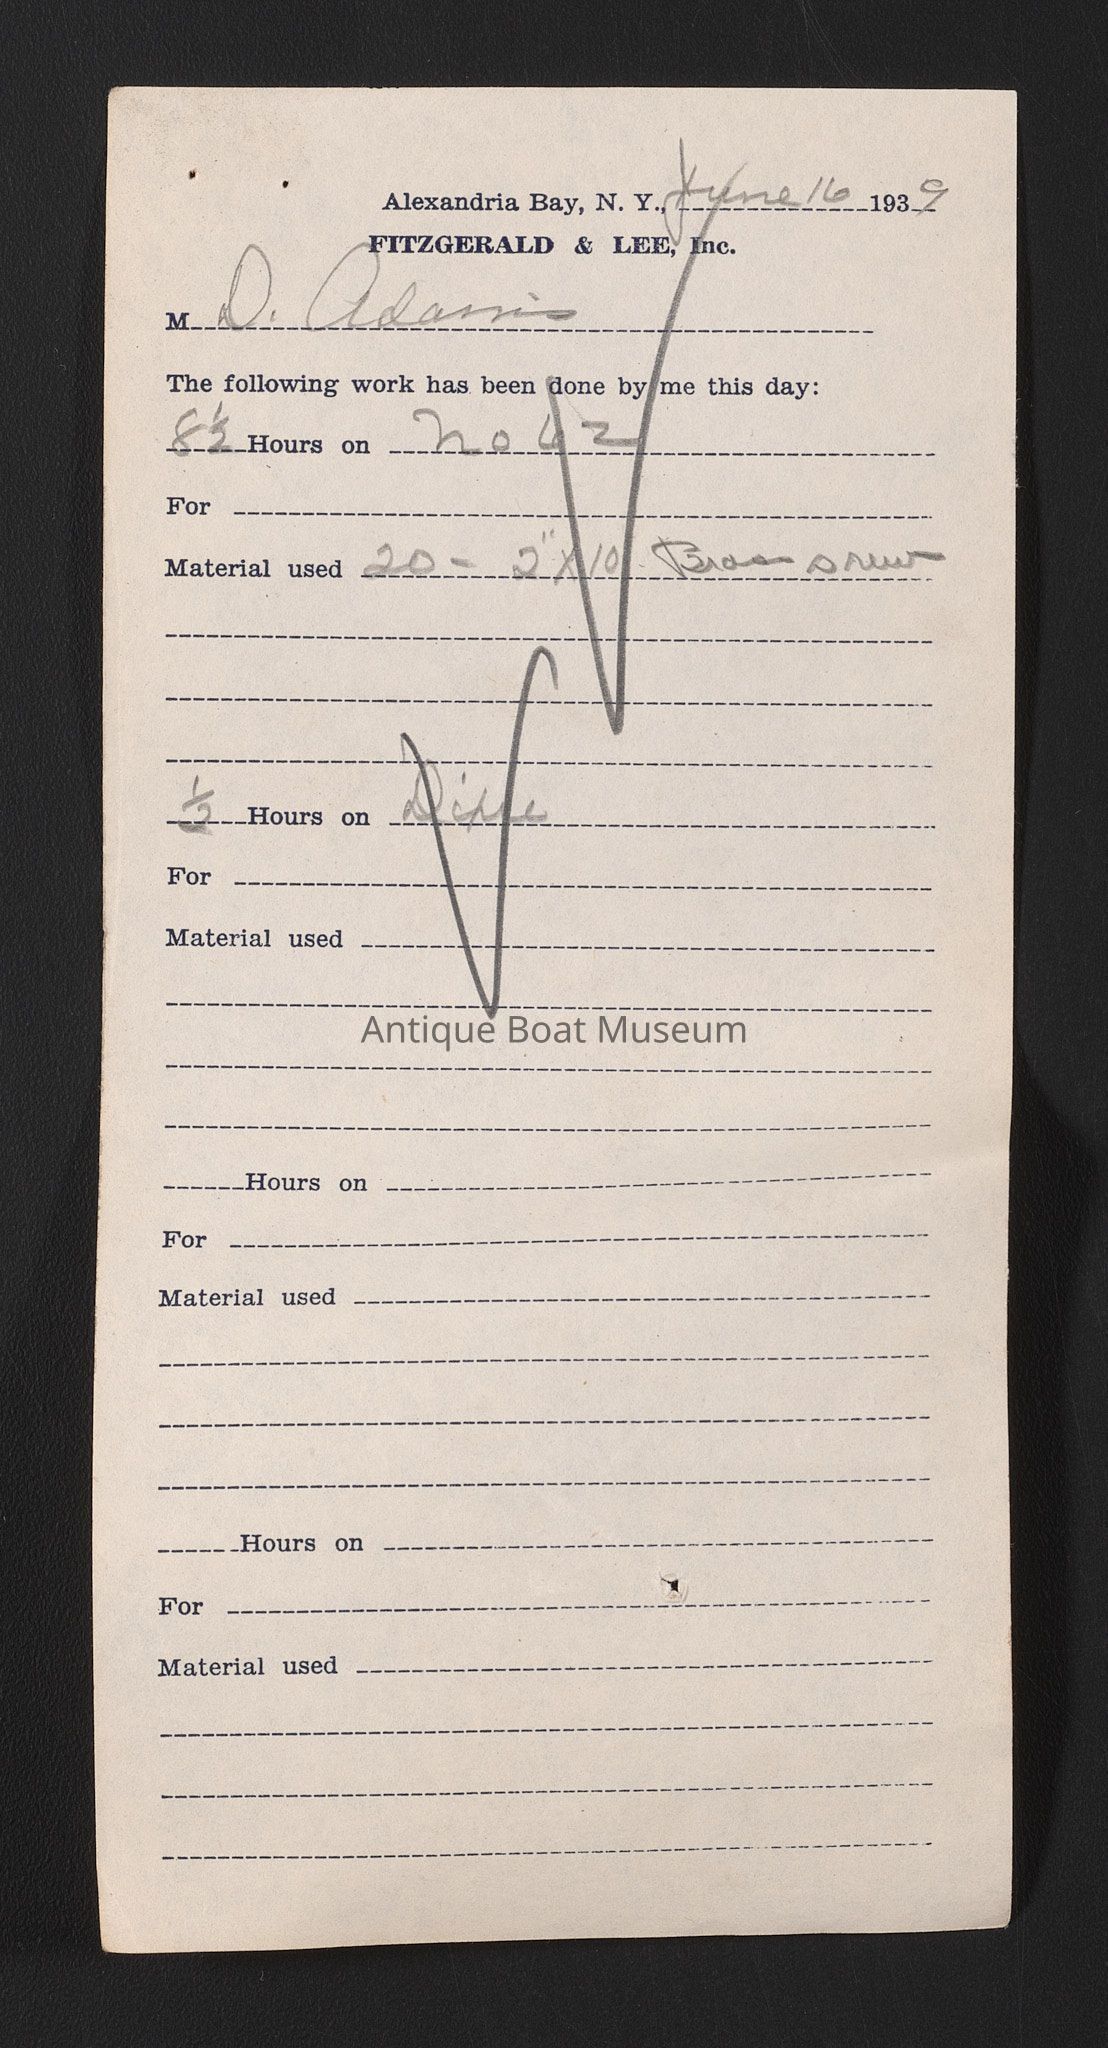 Alexandria Bay, N. Y., June 16 1939
FITZGERALD & LEE, Inc.
M D. Adams
The following work has been done by me this day:
8 1/2 Hours on No
For
Material used 20 - 2" X 10 Brass screw
1/2 Hours on
For
Material used
Antique Boat Museum
Hours on
For
Material used
Hours on
For
Material used